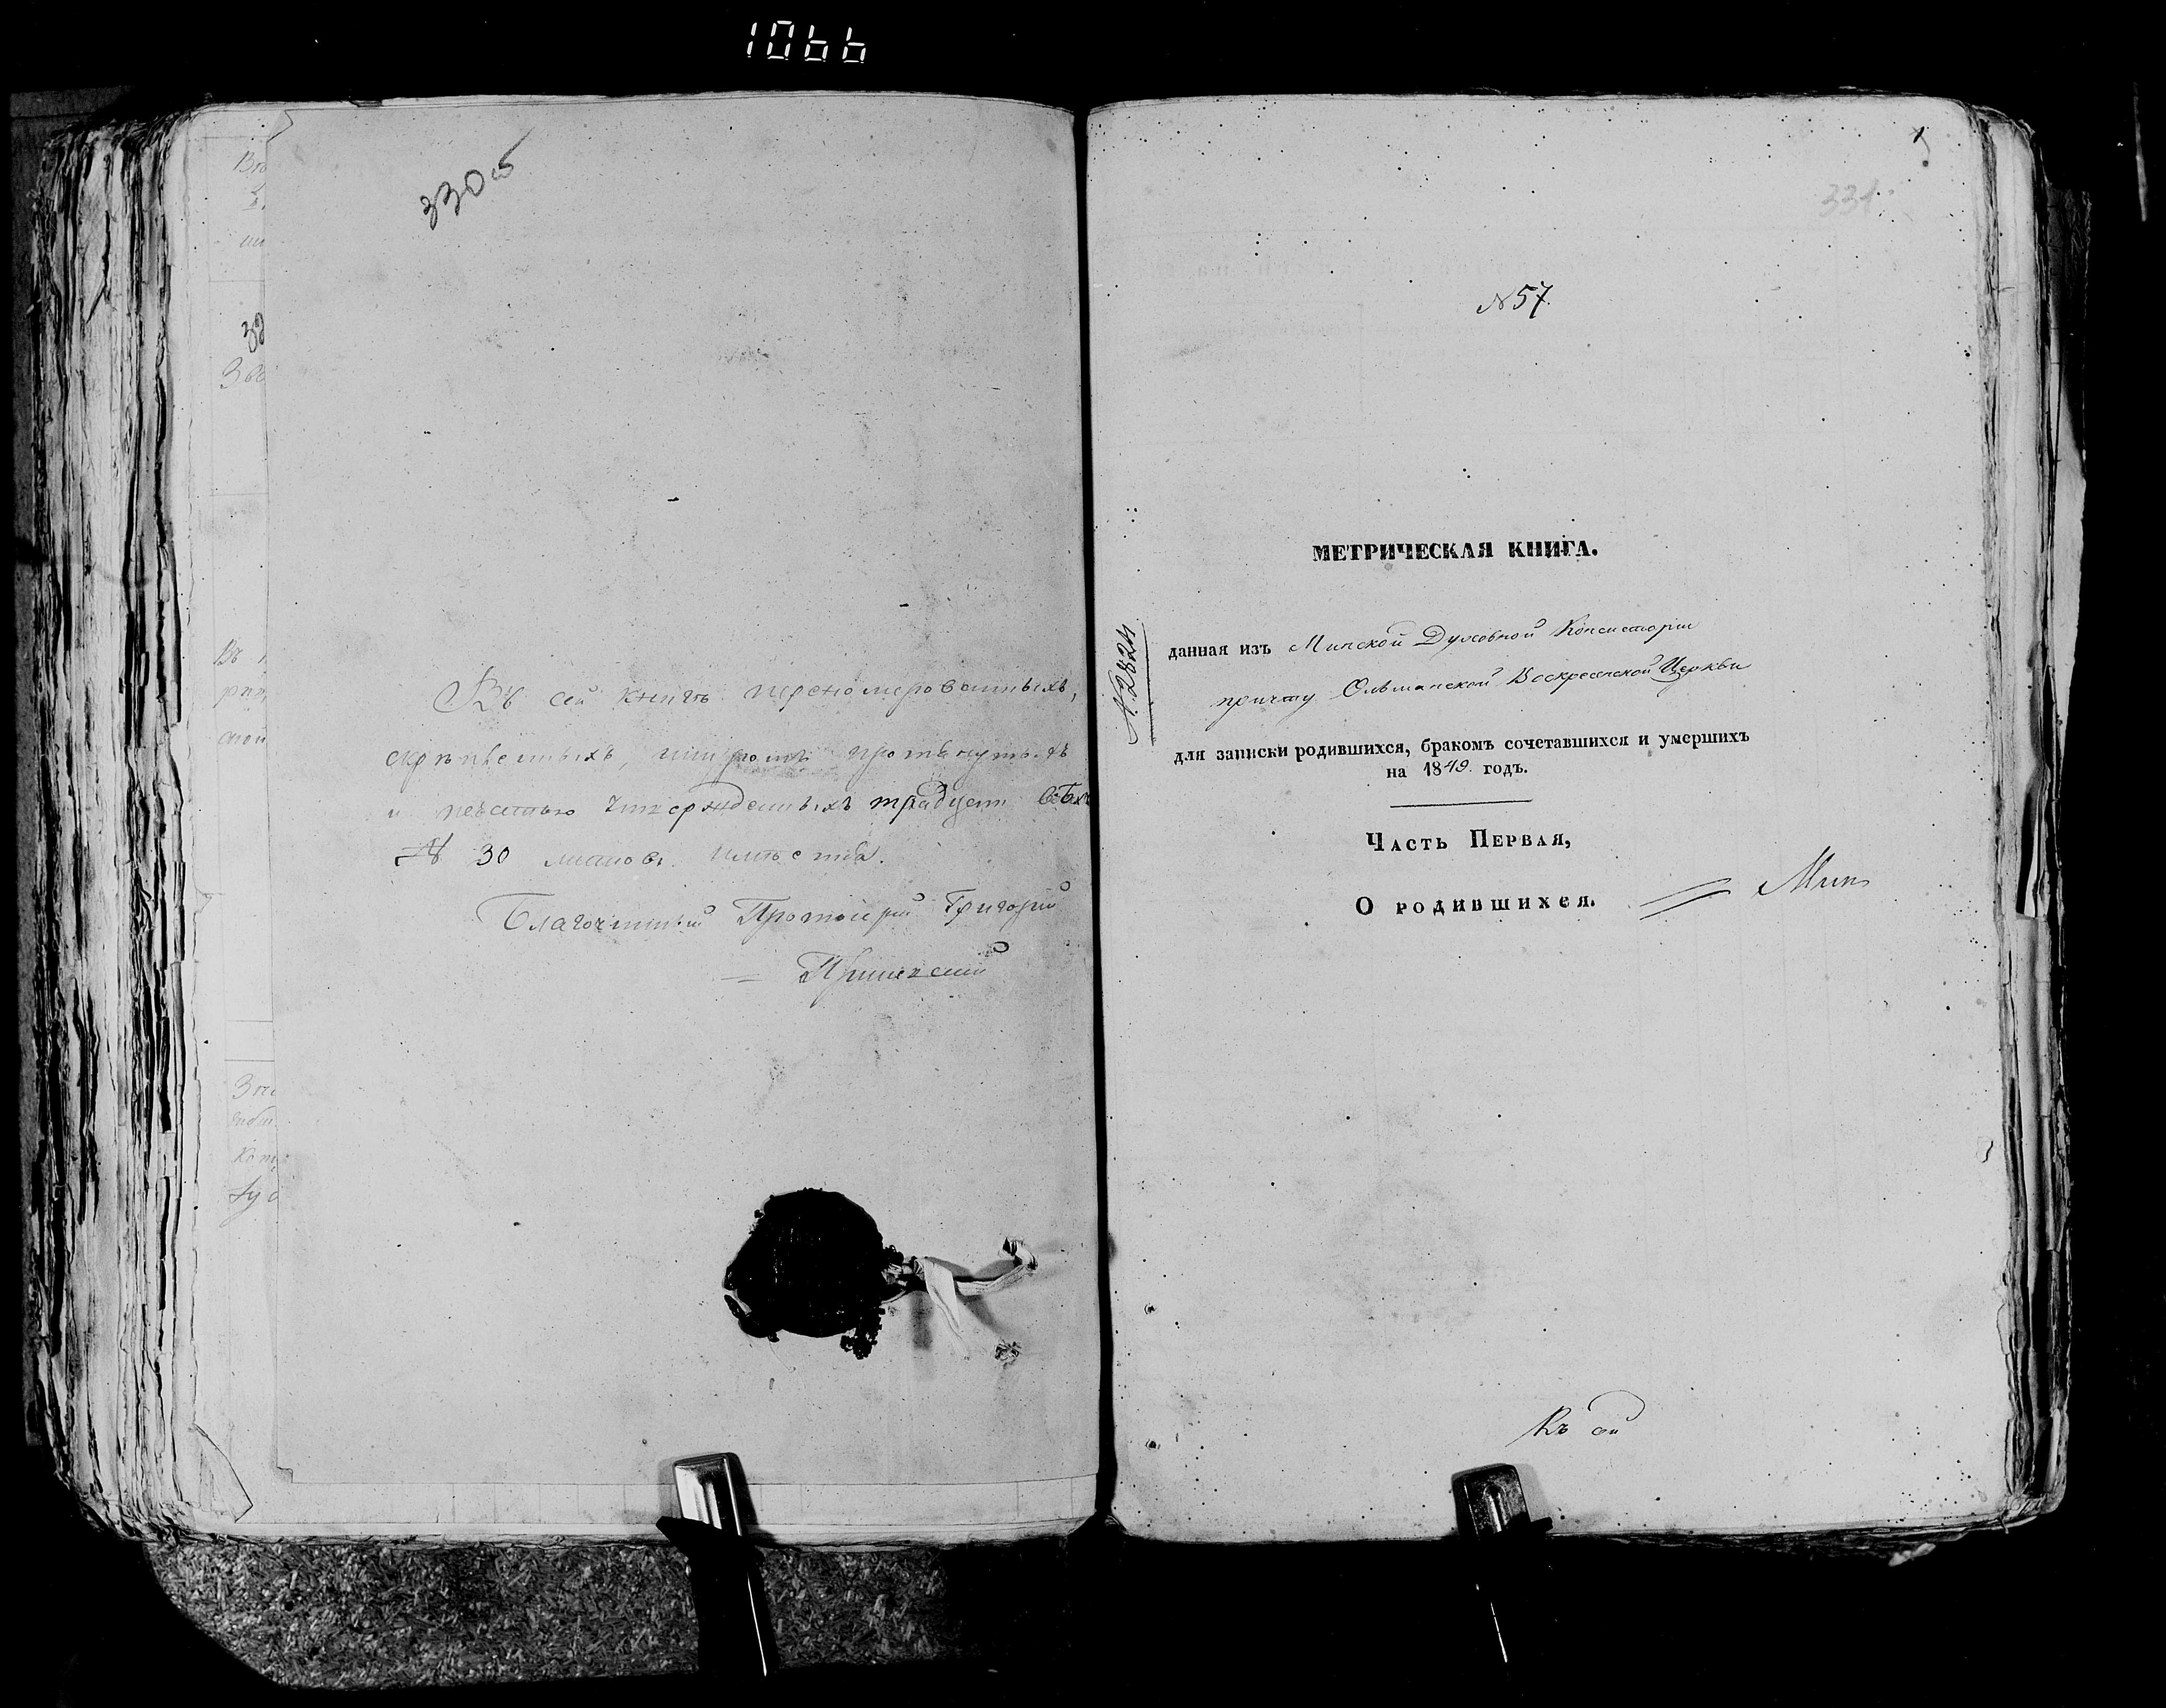 1066
330об
Въ сей книгѣ переномерованныхъ,
скрѣпленныхъ, шнуромъ протянутыхъ
и печатью утвержденныхъ тридцать всѣхъ
№ 30 листовъ
Благочинный Протоіерей Григорій
1
331
№ 57.
МЕТРИЧЕСКАЯ КНИГА.
№ 2824
данная изъ Минской Духовной Консисторіи
причту Ольшанской Воскресенской Церкви
для записки родившихся, бракомъ сочетавшихся и умершихъ
на 1849. годъ.
Часть Первая,
О родившихся. Мин
Къ сей